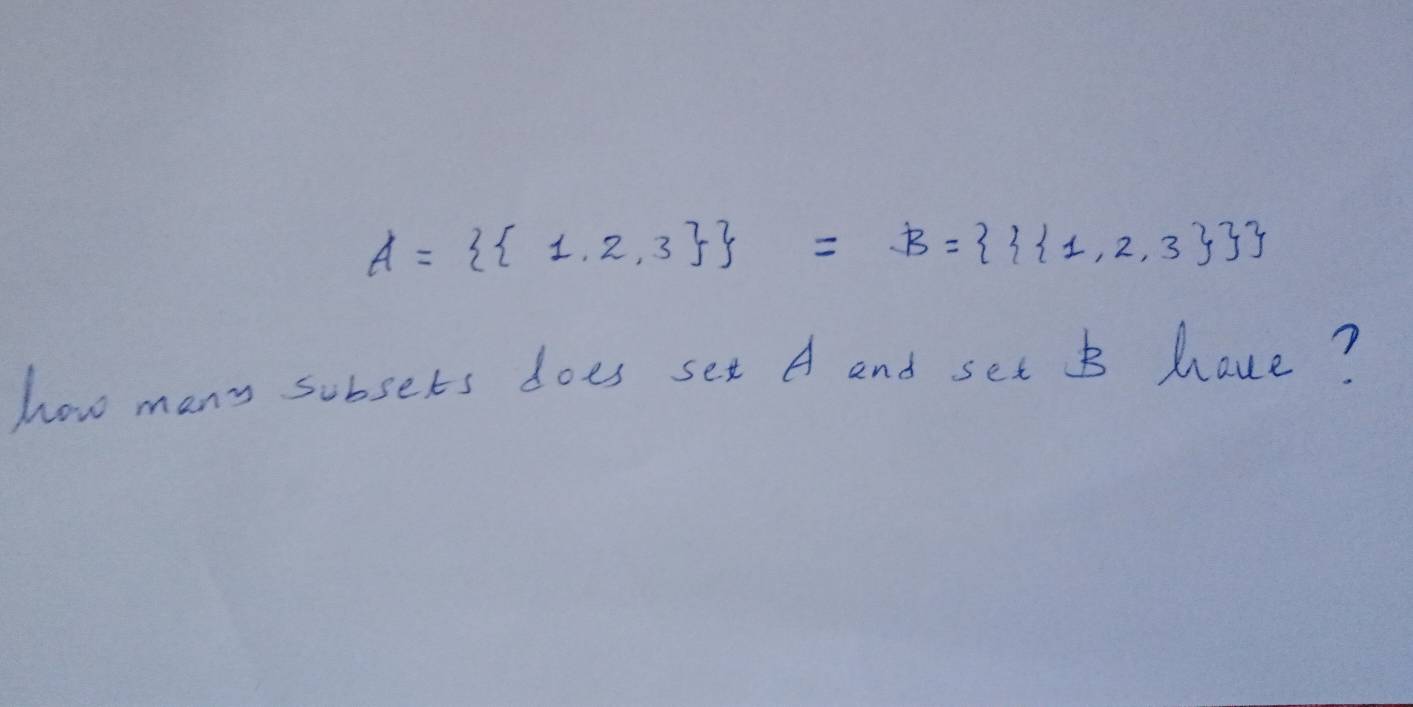 A = {{ 1.2,3}} = B = {{{1,2,3}}}
how many subsets does set A and set B have ?